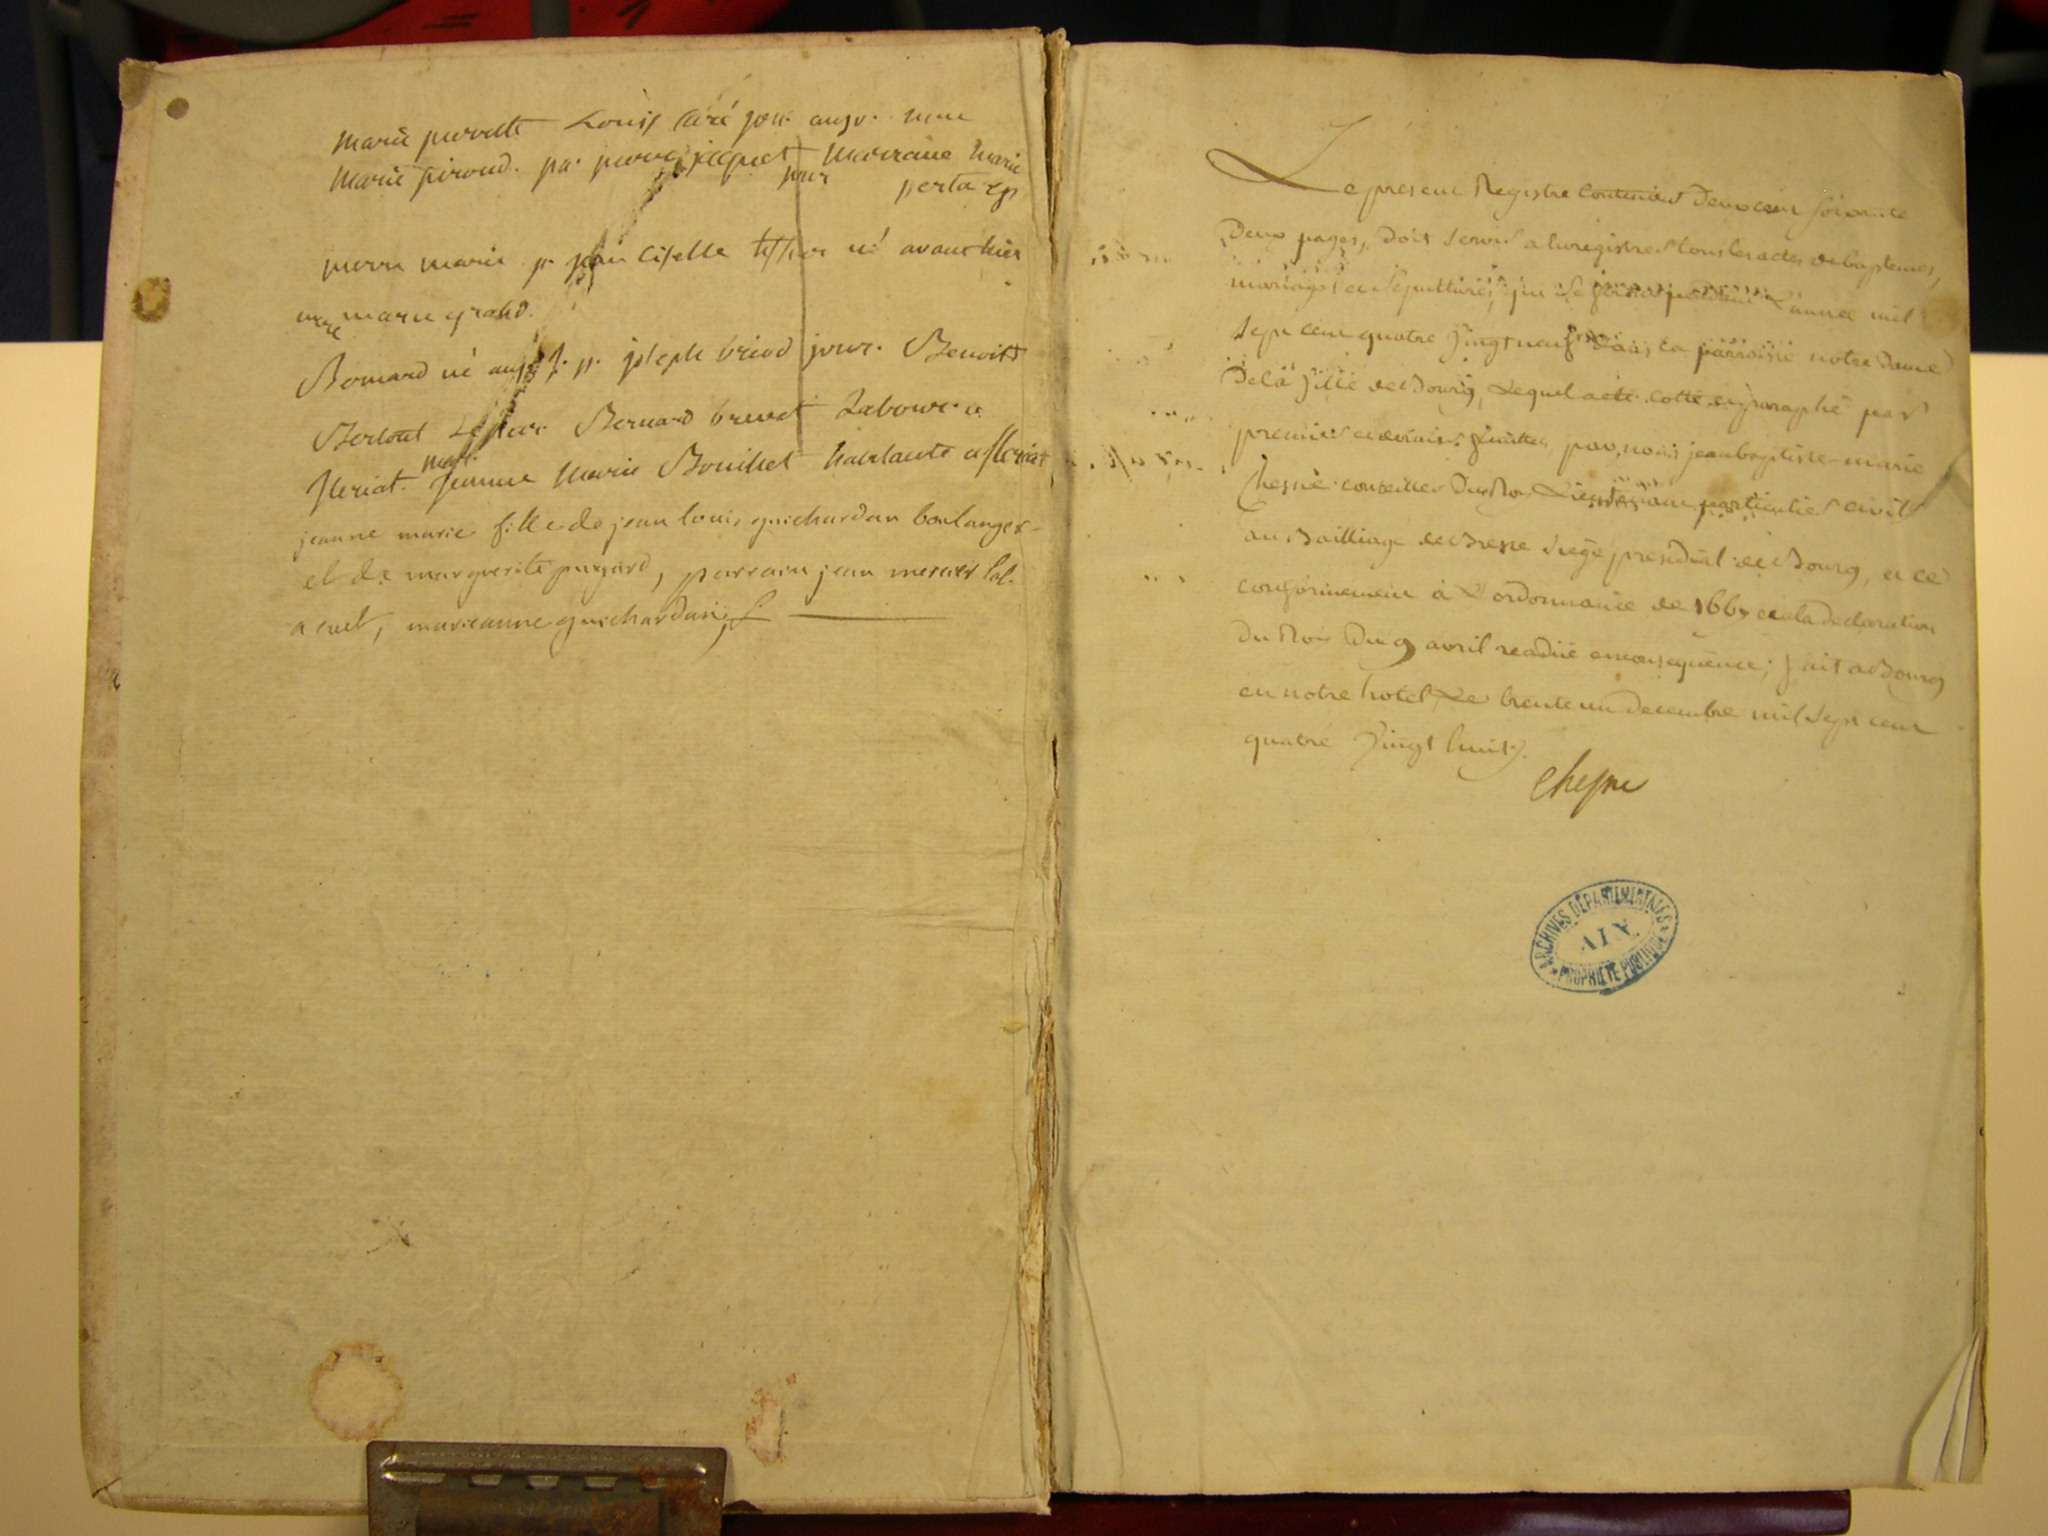 marie pierrette Louis Caré jou. aujo. mere
marie piroud. pa. pierre jacquet marraine marie
pour perta
pierre marie p. jean Liselle tessier né avant hier
mere marie grand.
Bernard né aujd. p. joseph briod jour. Benoite
Bertout Le parr. Bernard brevet Labour. a
fleriat. marr. jeanne Marie Bouillet habitante a fleriat
jeanne marie fille de jean louis guichardan boulanger
et de marguerite pugard, parrain jean mercier lab.
a cuet, marieanne guichardan f.
Le present Registre Contenant Deux cent soixante
Deux pages, Doit servir a Enregistrer tous les actes de baptemes,
mariages et Sepultures, qui se feront pendant L'année mil
sept cent quatre vingt neuf dans la parroisse notre Dame
De la ville de Bourg, Lequel a été cotté et paraphé par
premier et dernier feuillet, par nous jean baptiste marie
Chesne conseiller Du Roy Lieutenant particulier civil
au Bailliage de Bresse siège presidial de Bourg, et ce
conformement à L'ordonnance de 1667 et a la declaration
Du Roi Du 9 avril rendue en consequence; fait a Bourg
en notre hotel Le trente un Decembre mil sept cent
quatre vingt huit.
Chesne
ARCHIVES DÉPARTEMENTALES
AIN
PROPRIÉTÉ PUBLIQUE